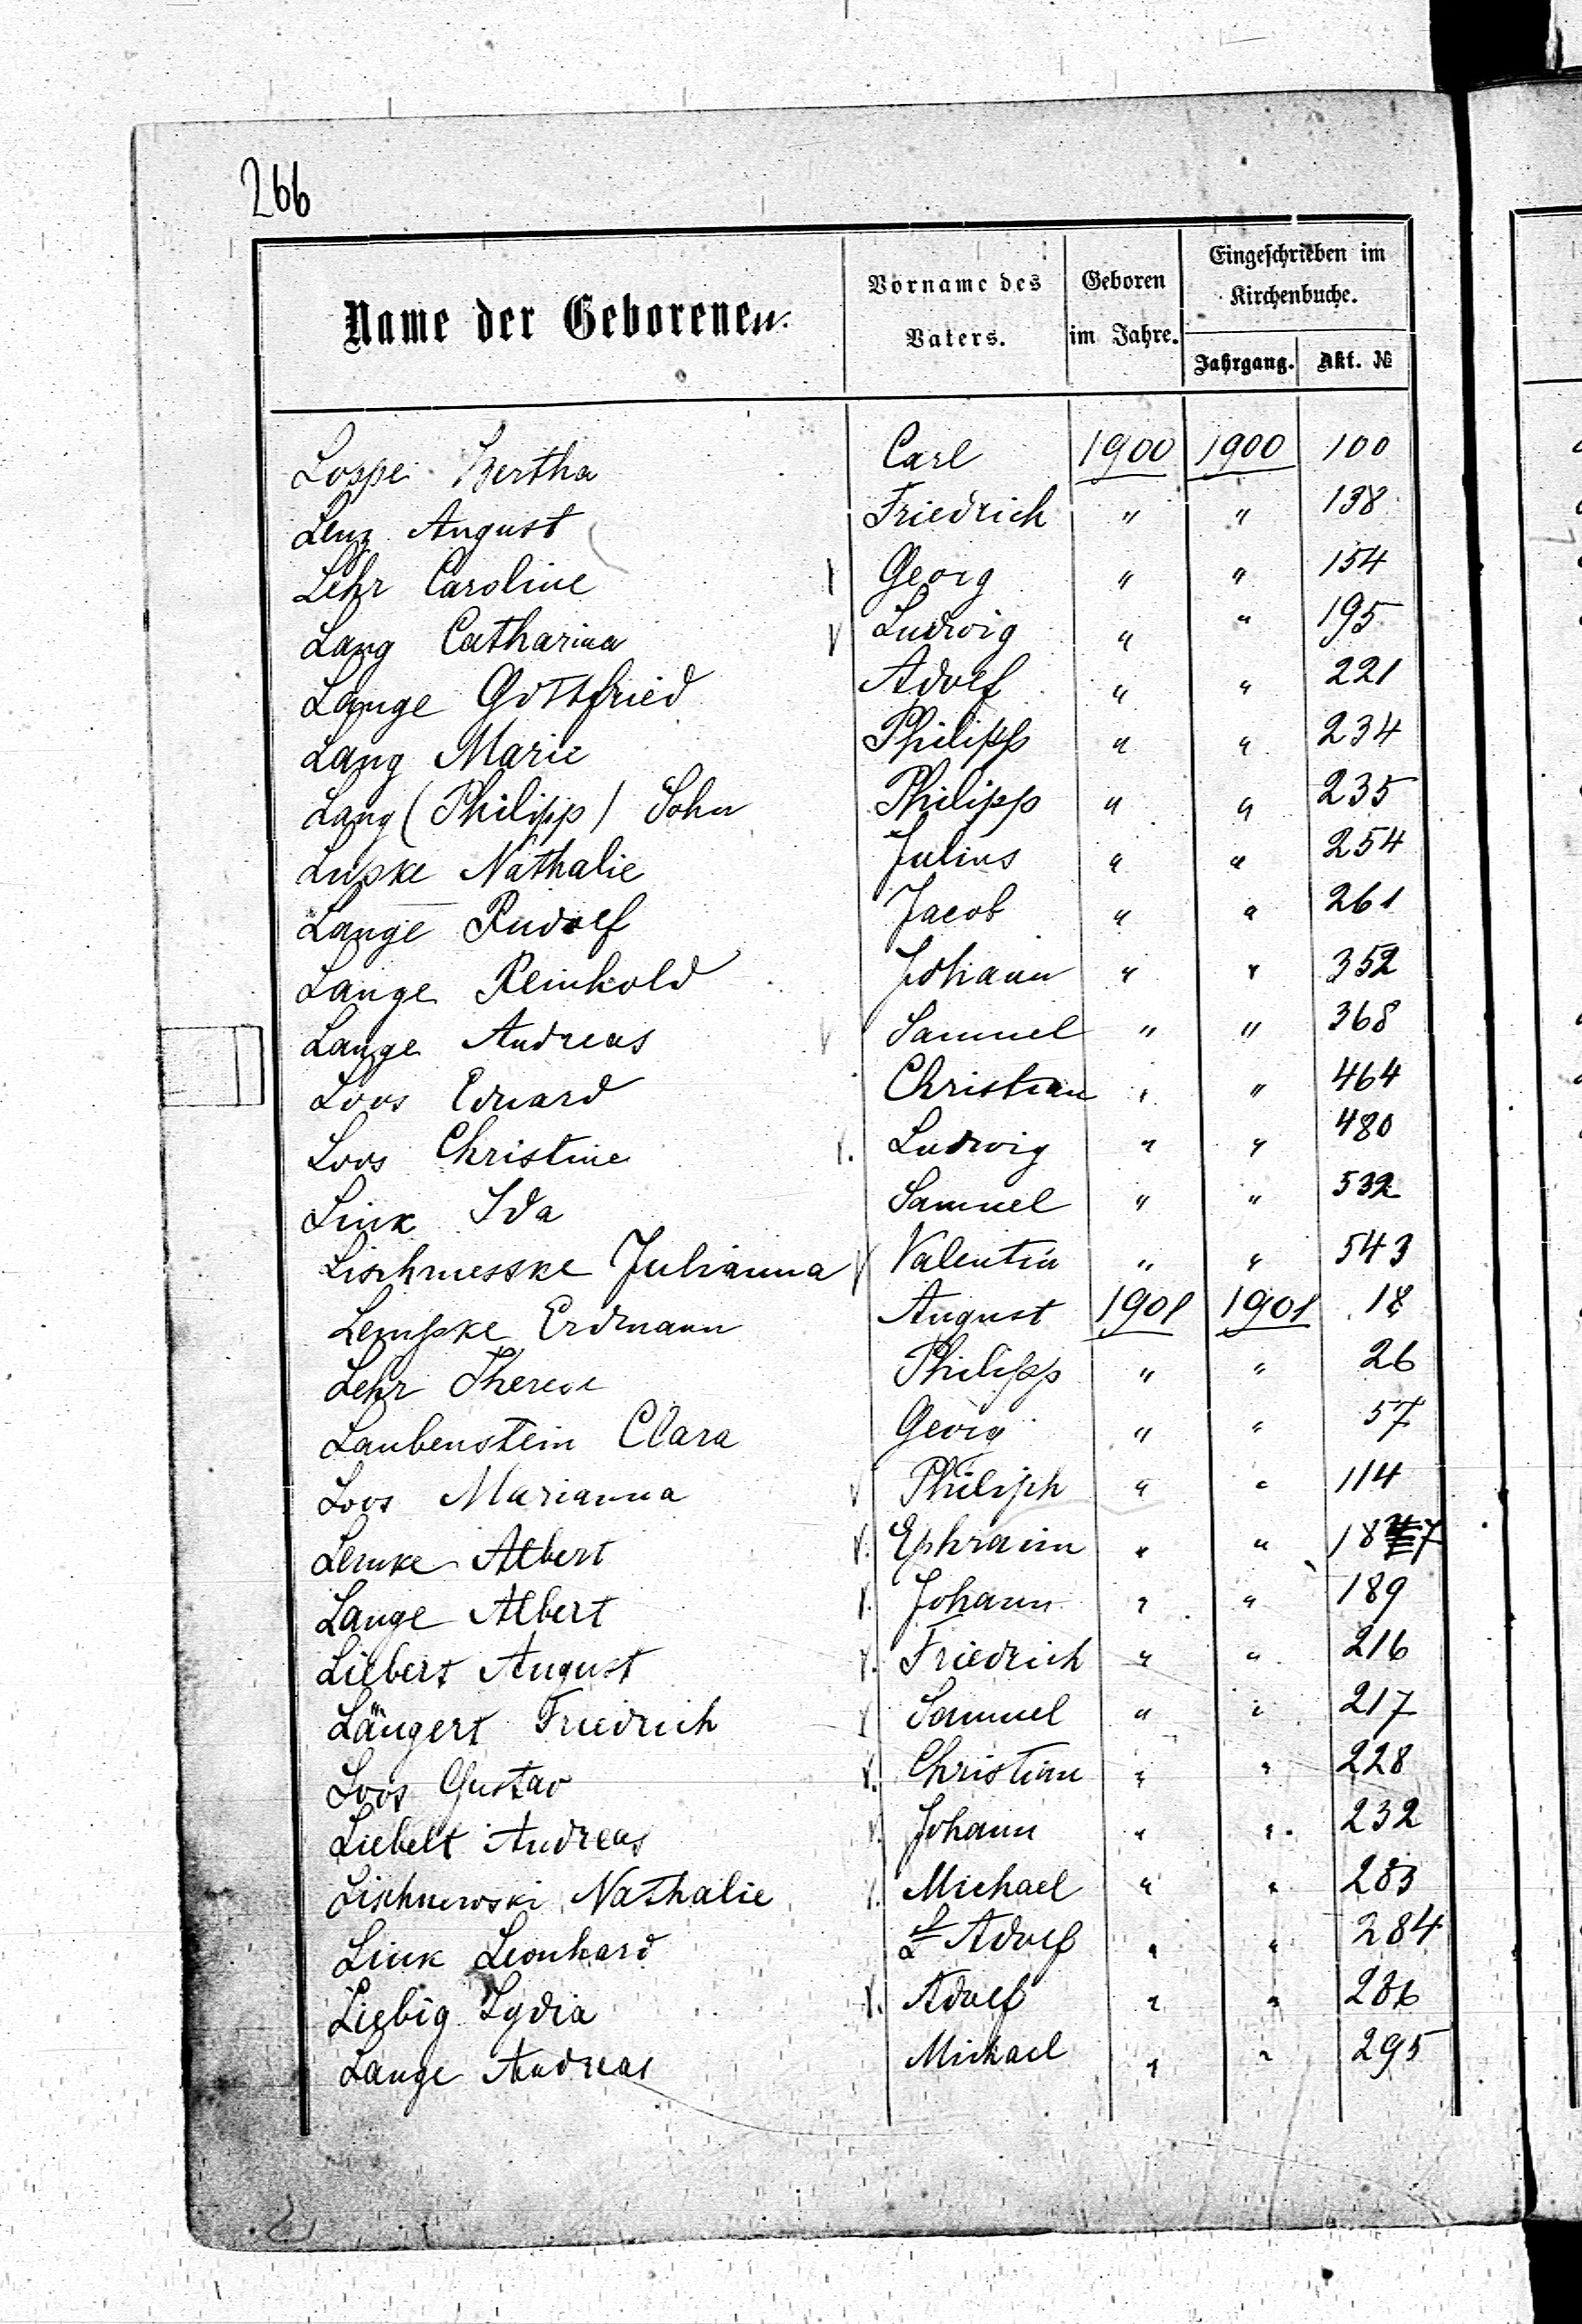 266
Name der Geborenen. Vorname des Vaters. Geboren im Jahre. Eingeschrieben im Kirchenbuche.
Jahrgang. Akt. №
Loppe Bertha Carl 1900 1900 100
Lenz August Friedrich " " 138
Lehr Caroline Georg " " 154
Lang Catharina Ludwig " " 195
Lange Gottfried Adolf " " 221
Lang Marie Philipp " " 234
Lang (Philipp) Sohn Philipp " " 235
Lupske Nathalie Julius " " 254
Lange Rudolf Jacob " " 261
Lange Reinhold Johann " " 352
Lange Andreas Samuel " " 368
Loos Eduard Christian " " 464
Loos Christine Ludwig " " 480
Link Ida Samuel " " 532
Lischnesske Julianna Valentin " " 543
Lempke Erdmann August 1901 1901 18
Lehr Therese Philipp " " 26
Laubenstein Clara Georg " " 57
Loos Marianna Philiph " " 114
Lemke Albert Ephraim " " 187
Lange Albert Johann " " 189
Liebert August Friedrich " " 216
Längert Friedrich Samuel " " 217
Loos Gustav Christian " " 228
Liebelt Andreas Johann " " 232
Lischnewski Nathalie Michael " " 283
Link Leonhard Adolf " " 284
Liebig Lydia Adolf " " 286
Lange Andreas Michael " " 295